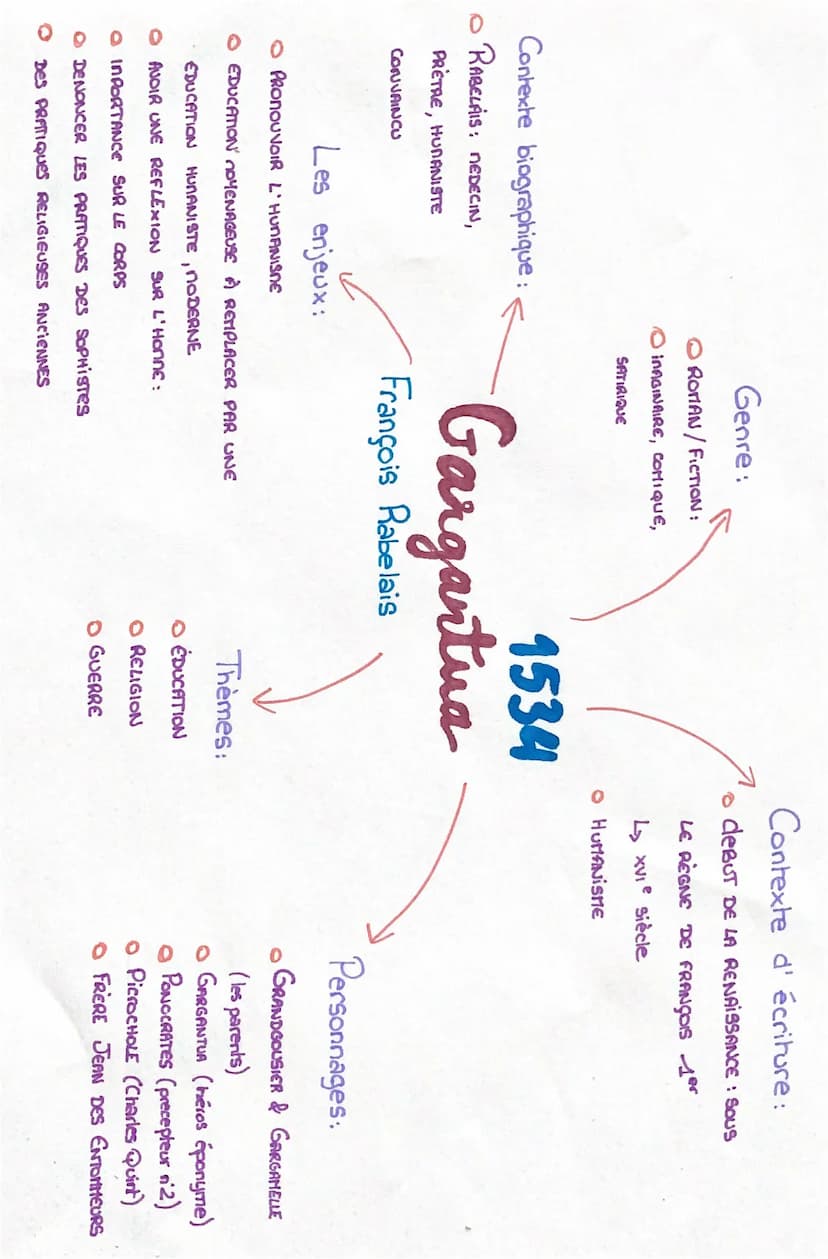 Contexte biographique :
RABELAIS : MEDECIN,
PRÊTRE, HUMANISTE
CONVAINCU
Genre :
ROMAN / FICTION :
IMAGINAIRE, COMIQUE,
SATIRIQUE
Contexte d'écriture :
DEBUT DE LA RENAISSANCE : SOUS
LE RÈGNE DE FRANÇOIS 1er
↳ XVIe SIÈCLE
HUMANISME
1534
Gargantua
François Rabelais
Les enjeux :
PROMOUVOIR L'HUMANISME
EDUCATION MOYENAGEUSE À REMPLACER PAR UNE
ÉDUCATION HUMANISTE, MODERNE
AVOIR UNE REFLEXION SUR L'HOMME :
IMPORTANCE SUR LE CORPS
DENONCER LES PRATIQUES DES SOPHISTES
DES PRATIQUES RELIGIEUSES ANCIENNES
Thèmes :
ÉDUCATION
RELIGION
GUERRE
Personnages :
GRANDGOUSIER & GARGAMELLE
(les parents)
GARGANTUA (héros éponyme)
PONOCRATES (precepteur n°2)
PICROCHOLE (Charles Quint)
FRÈRE JEAN DES ENTOMMEURS